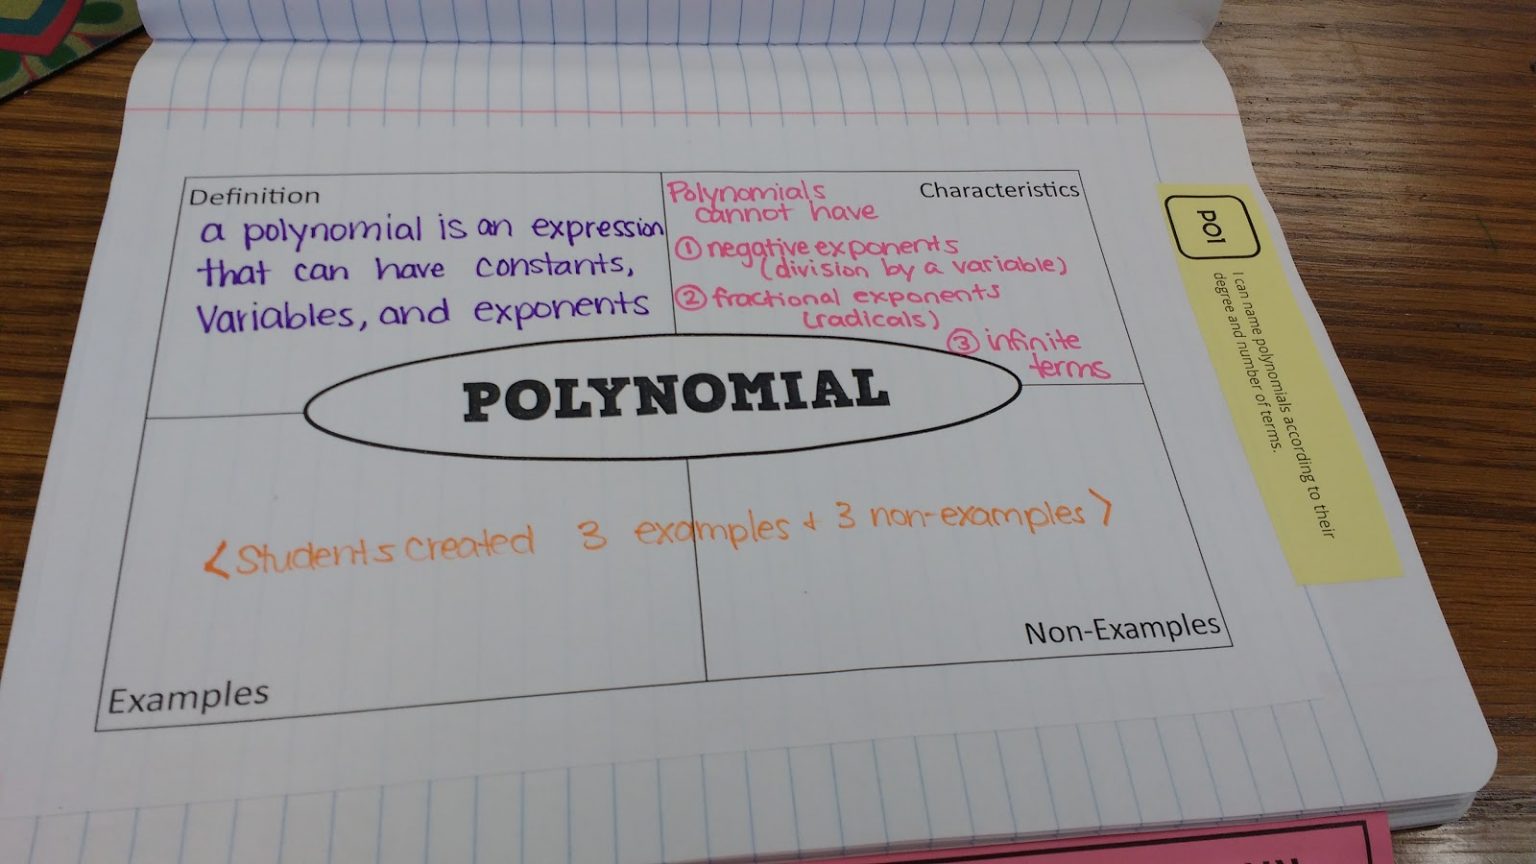 Definition
a polynomial is an expression
that can have constants,
Variables, and exponents
Characteristics
Polynomials
cannot have
① negative exponents
(division by a variable)
② fractional exponents
(radicals)
③ infinite
terms
POLYNOMIAL
<Students created 3 examples + 3 non-examples>
Examples
Non-Examples
PO1
I can name polynomials according to their
degree and number of terms.